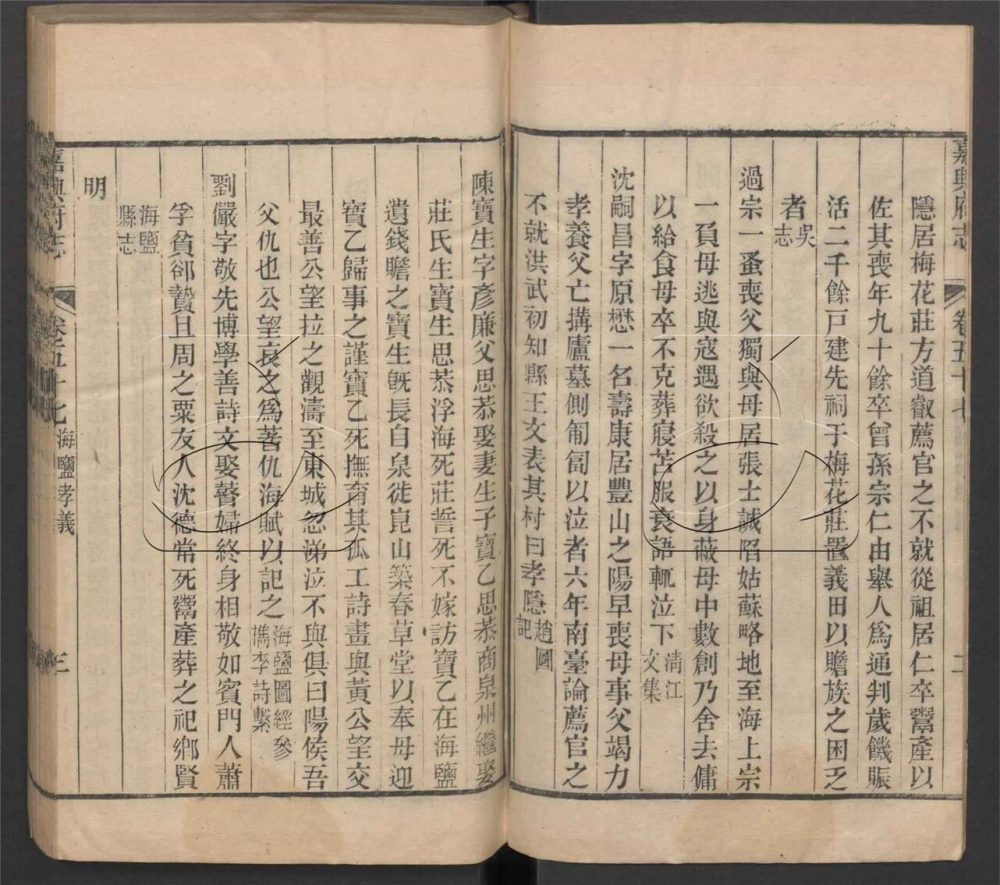 嘉興府志 卷五十七 二
隱居梅花莊方道叡薦官之不就從祖居仁卒鬻產以
佐其喪年九十餘卒曾孫宗仁由舉人爲通判歲饑賑
活二千餘戸建先祠于梅花莊置義田以贍族之困乏
者吳志
過宗一蚤喪父獨與母居張士誠陷姑蘇略地至海上宗
一負母逃與寇遇欲殺之以身蔽母中數創乃舍去傭
以給食母卒不克葬寢苫服衰語輒泣下清江文集
沈嗣昌字原懋一名壽康居豐山之陽早喪母事父竭力
孝養父亡搆廬墓側匍匐以泣者六年南臺論薦官之
不就洪武初知縣王文表其村曰孝隱趙圖記
陳寶生字彥廉父思恭娶妻生子寶乙思恭商泉州繼娶
莊氏生寶生思恭浮海死莊誓死不嫁訪寶乙在海鹽
遺錢贍之寶生旣長自泉徙崑山築春草堂以奉母迎
寶乙歸事之謹寶乙死撫育其孤工詩畫與黃公望交
最善公望拉之觀濤至東城忽涕泣不與俱曰陽侯吾
父仇也公望哀之爲著仇海賦以記之海鹽圖經參檇李詩繫
劉儼字敬先博學善詩文娶瞽婦終身相敬如賓門人蕭
孚貧郤贄且周之粟友人沈德常死鬻產葬之祀鄉賢
海鹽縣志
明
嘉興府志 卷五十七 海鹽孝義 三